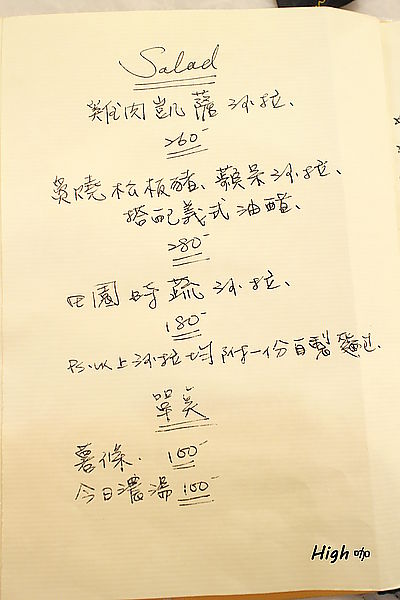 Salad
雞肉凱薩沙拉、
260-
蘋果沙拉、
搭配義式油醋、
280-
田園時蔬沙拉、
180-
PS.以上沙拉均附一份自製麵包
單點
薯條. 100-
今日濃湯 100-
High 咖